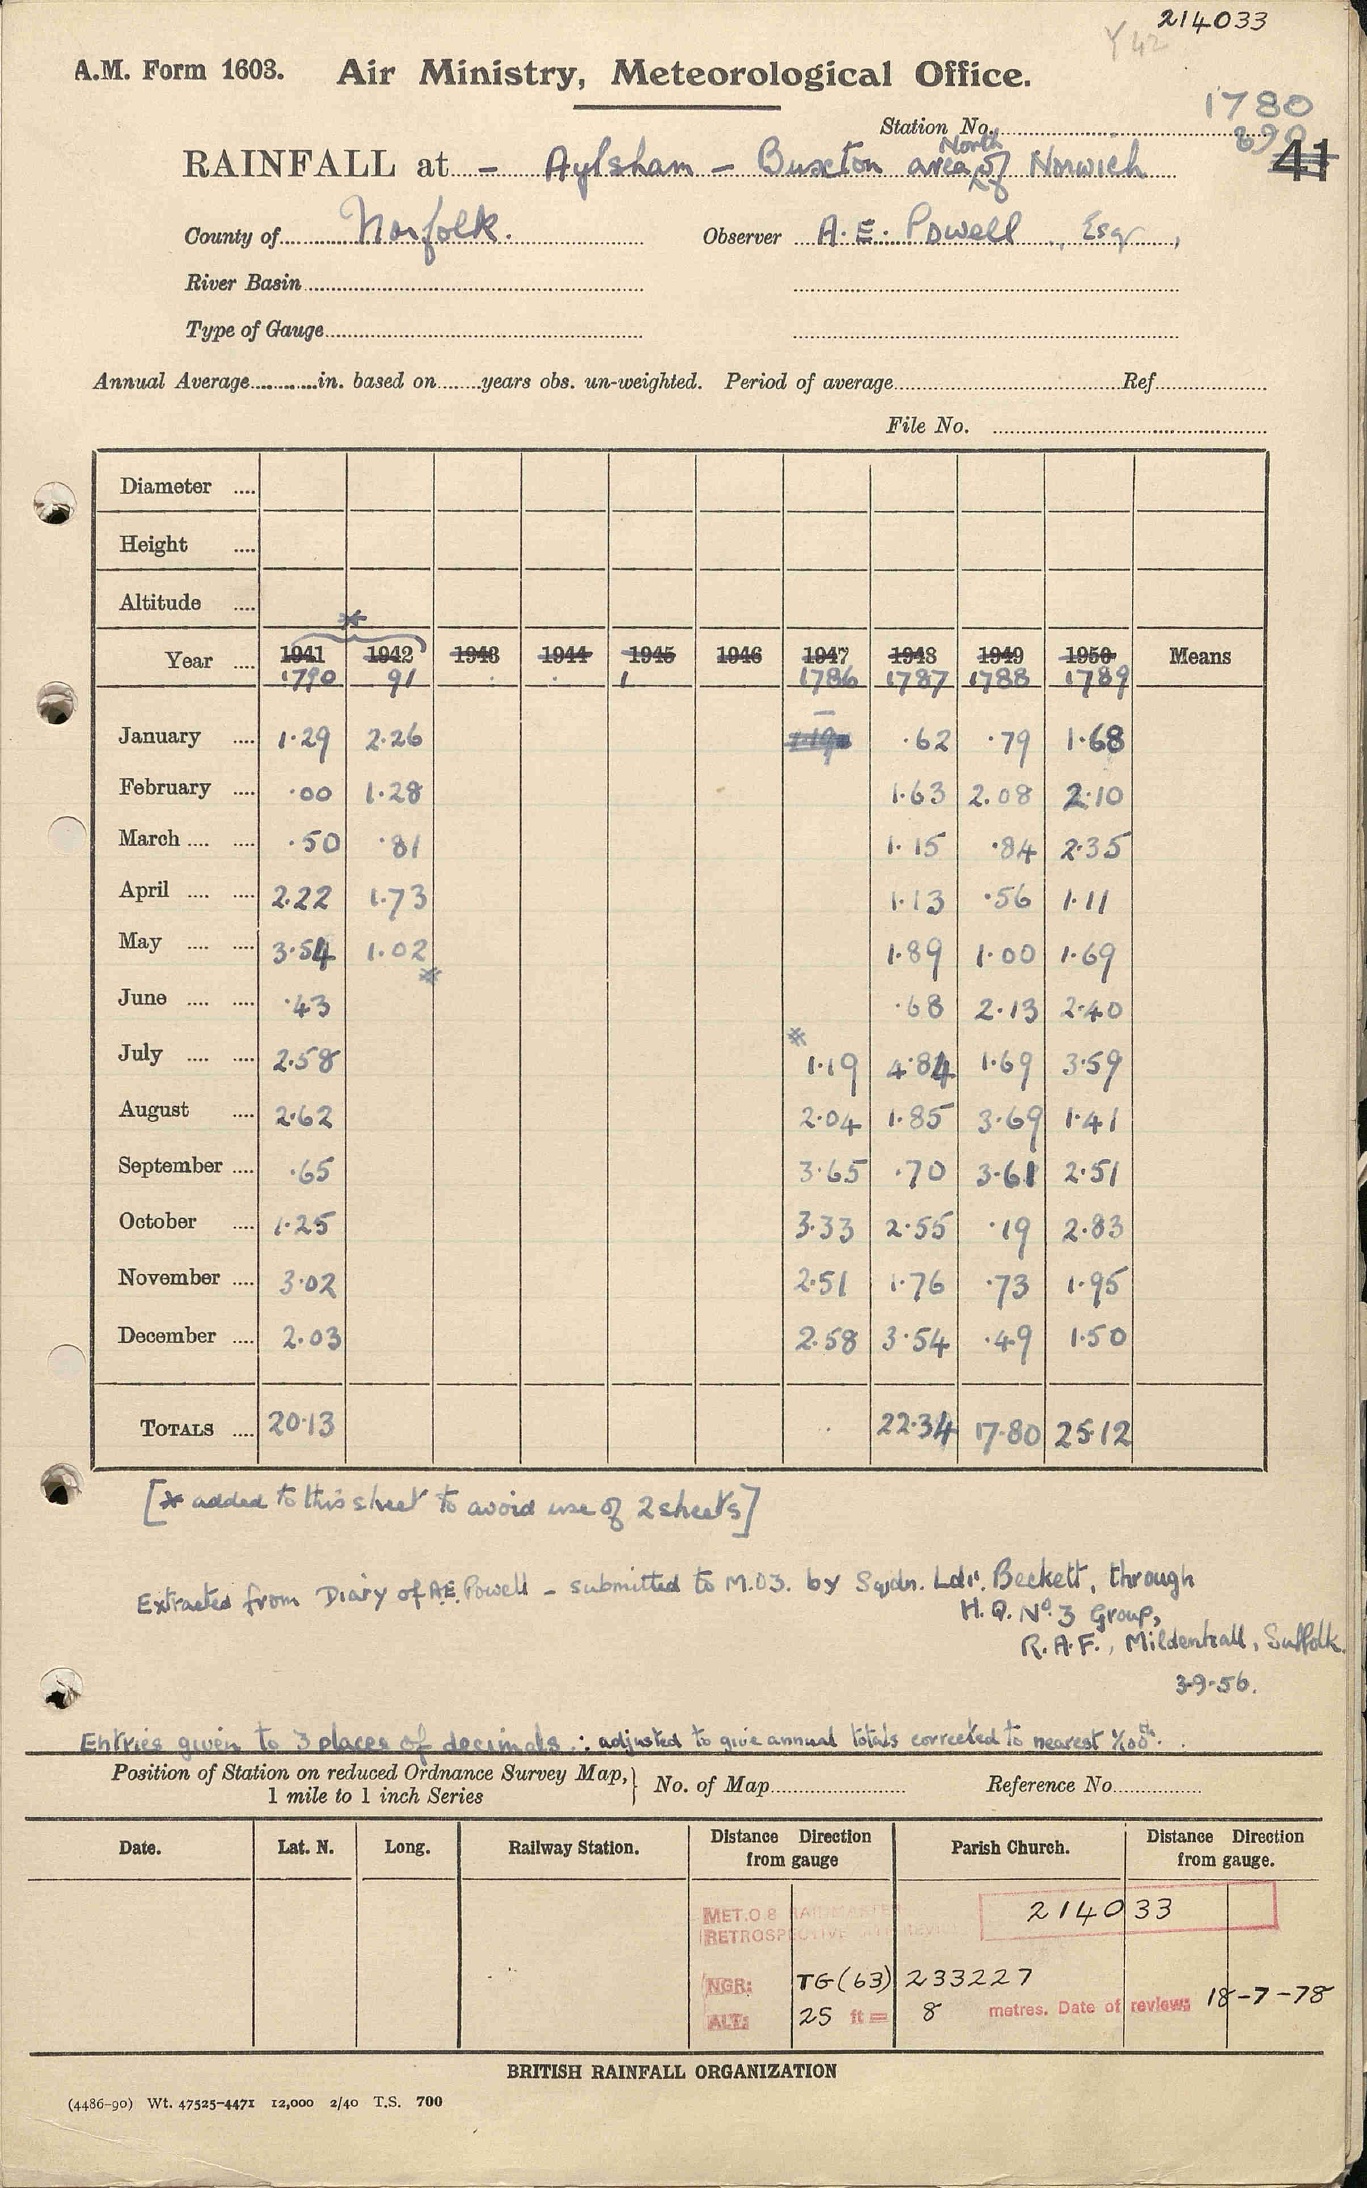 214033
Y 42
A.M. Form 1603. Air Ministry, Meteorological Office.
1780
Station No.
41
North
RAINFALL at - Aylsham - Buxton area of Norwich
County of Norfolk. Observer A. E. Powell, Esqr,
River Basin
Type of Gauge
Annual Average in. based on years obs. un-weighted. Period of average Ref
File No.
Diameter ....
Height ....
Altitude ....
*
Year .... 1941 1942 1943 1944 1945 1946 1947 1948 1949 1950 Means
1790 91 1786 1787 1788 1789
January .... 1.29 2.26 1.19 – .62 .79 1.68
February .... .00 1.28 1.63 2.08 2.10
March .... .... .50 .81 1.15 .84 2.35
April .... .... 2.22 1.73 1.13 .56 1.11
May .... .... 3.54 1.02 * 1.89 1.00 1.69
June .... .... .43 .68 2.13 2.40
July .... .... 2.58 * 1.19 4.84 1.69 3.59
August .... 2.62 2.04 1.85 3.69 1.41
September .... .65 3.65 .70 3.61 2.51
October .... 1.25 3.33 2.55 .19 2.83
November .... 3.02 2.51 1.76 .73 1.95
December .... 2.03 2.58 3.54 .49 1.50
TOTALS .... 20.13 22.34 17.80 25.12
[* added to this sheet to avoid use of 2 sheets]
Extracted from Diary of A.E. Powell - submitted to M.O3. by Sqdn. Ldr. Beckett, through
H.Q. No. 3 Group,
R.A.F., Mildenhall, Suffolk.
3-9-56.
Entries given to 3 places of decimals ∴ adjusted to give annual totals corrected to nearest 1/100th.
Position of Station on reduced Ordnance Survey Map, } No. of Map Reference No.
1 mile to 1 inch Series
Date. Lat. N. Long. Railway Station. Distance Direction from gauge Parish Church. Distance Direction from gauge.
MET.O.8 RAINMASTER 214033
RETROSPECTIVE DATA REVIEW
NGR: TG (63) 233227
ALT: 25 ft = 8 metres. Date of review: 18-7-78
BRITISH RAINFALL ORGANIZATION
(4486-90) Wt. 47525-4471 12,000 2/40 T.S. 700